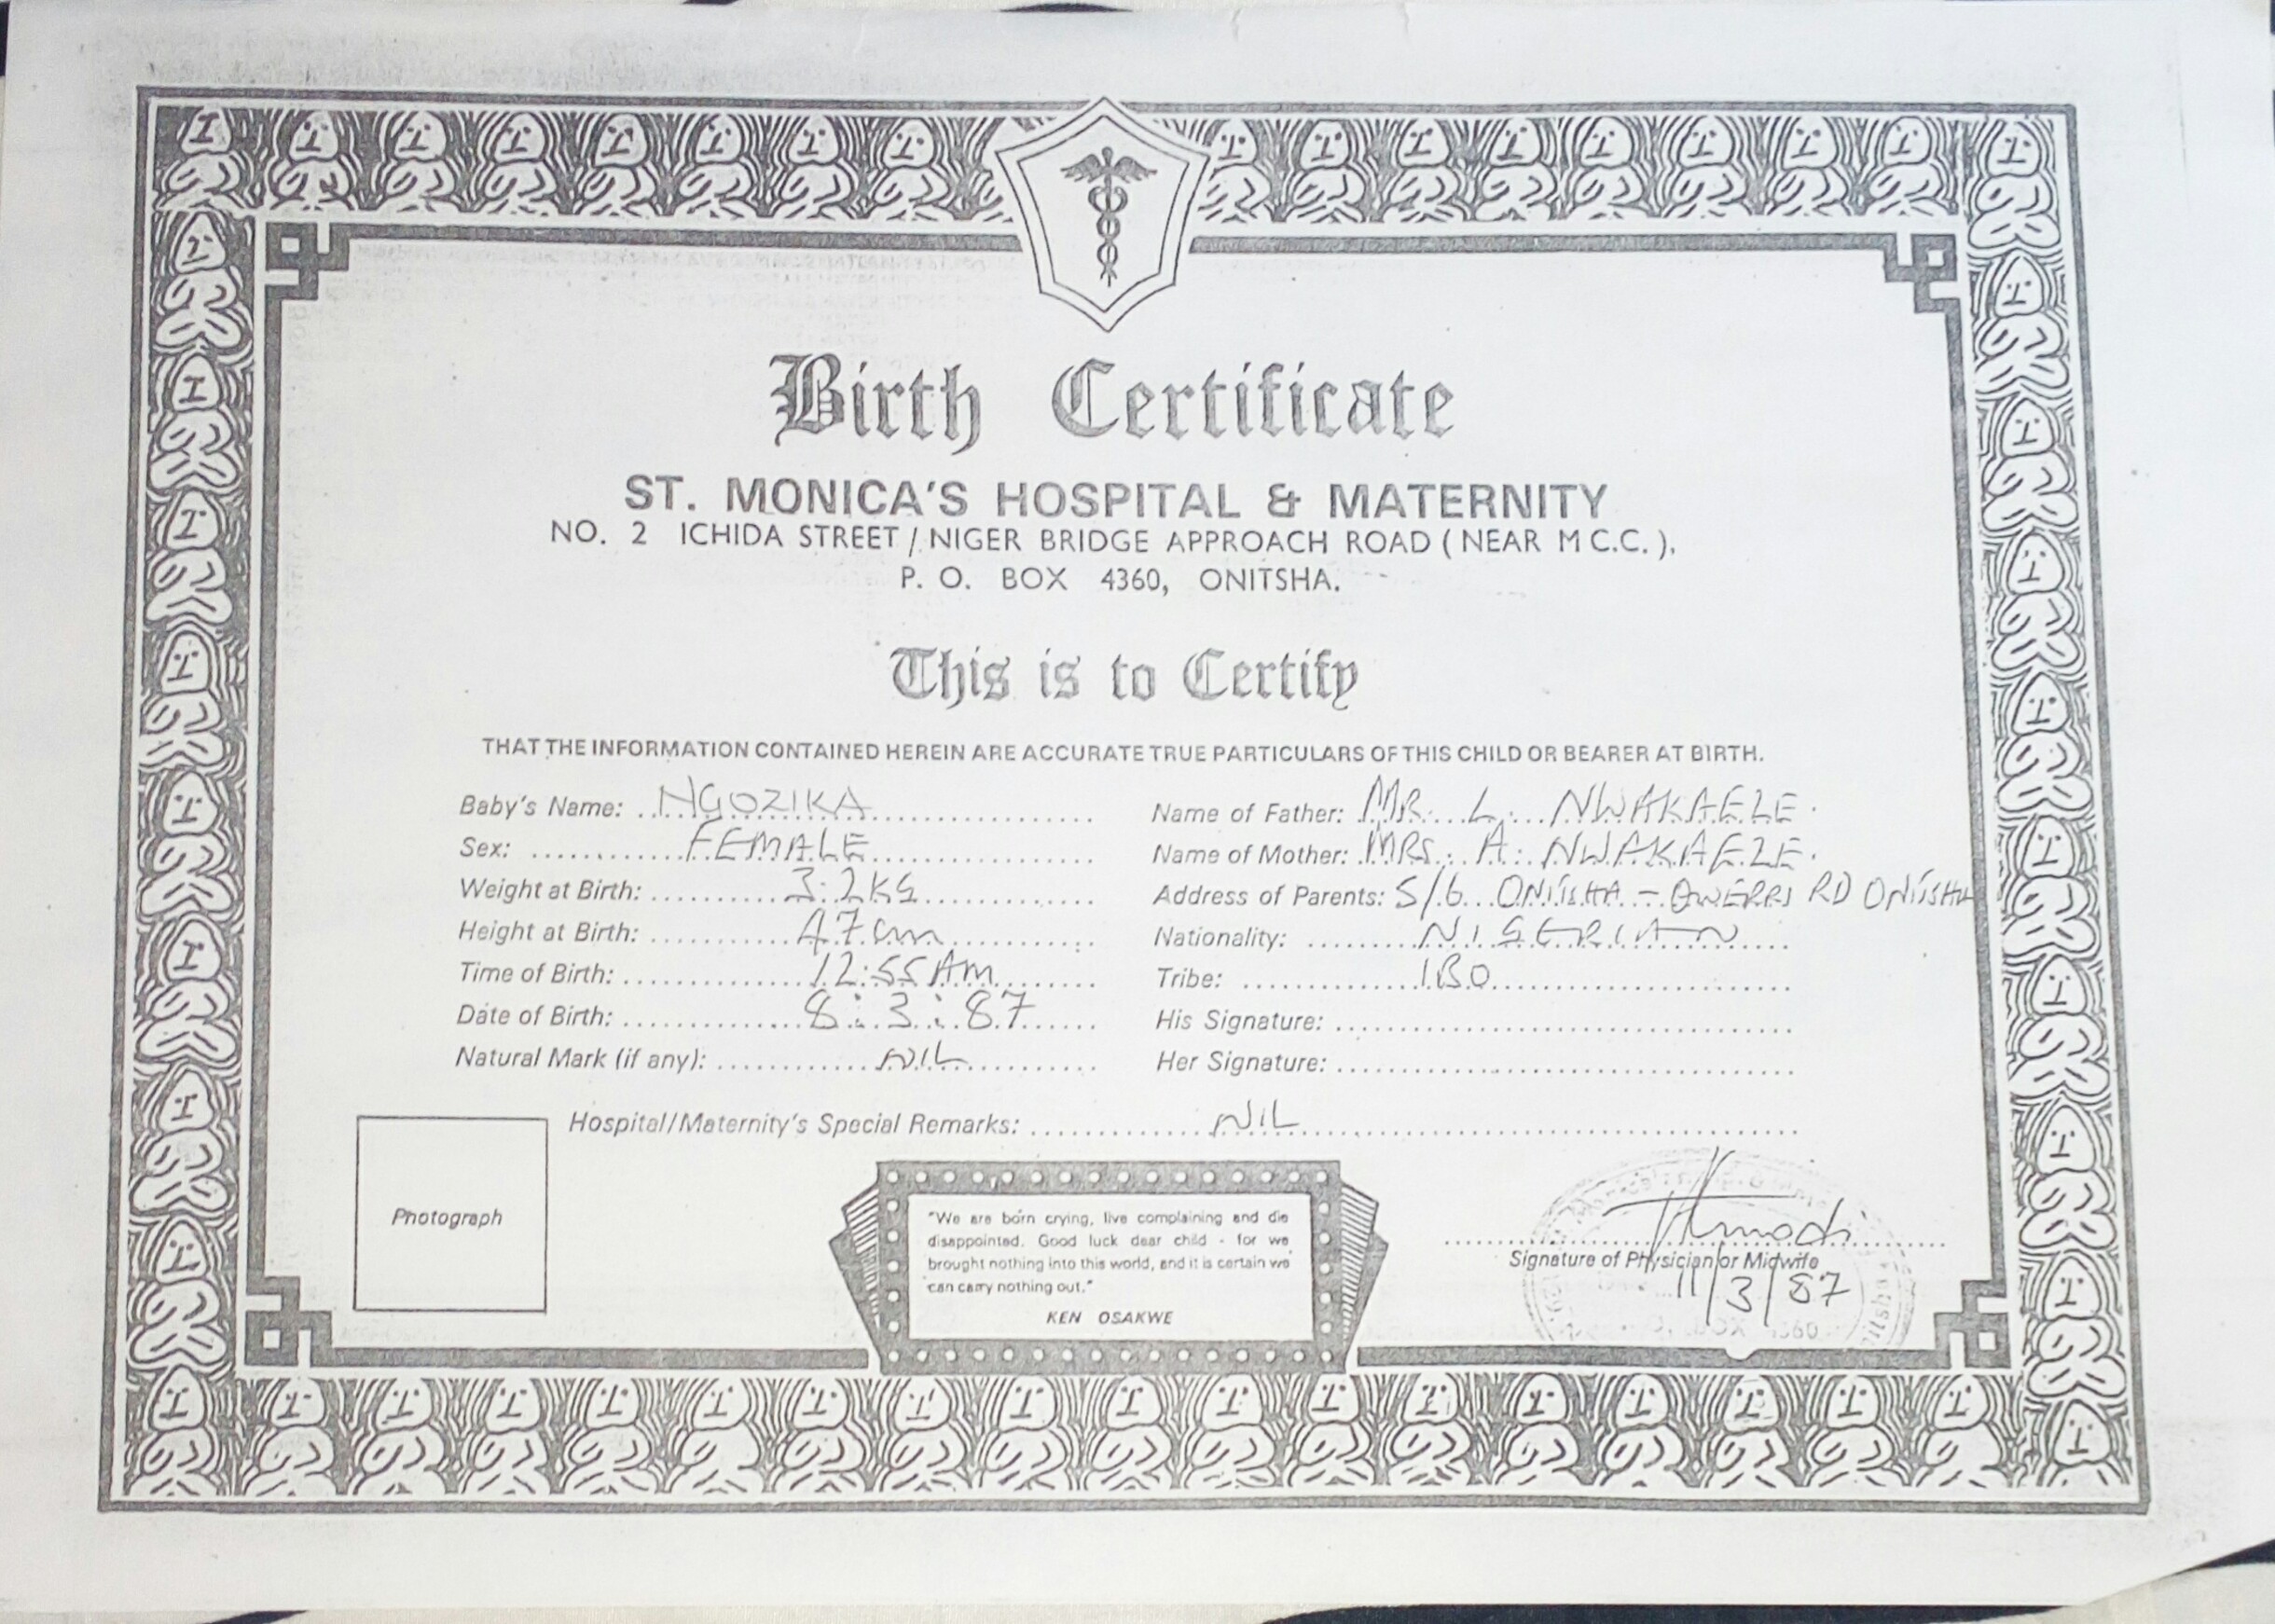 Birth Certificate
ST. MONICA'S HOSPITAL & MATERNITY
NO. 2 ICHIDA STREET / NIGER BRIDGE APPROACH ROAD (NEAR M C.C.),
P. O. BOX 4360, ONITSHA.
This is to Certify
THAT THE INFORMATION CONTAINED HEREIN ARE ACCURATE TRUE PARTICULARS OF THIS CHILD OR BEARER AT BIRTH.
Baby's Name: NGOZIKA
Sex: FEMALE
Weight at Birth: 3.2KG
Height at Birth: 47cm
Time of Birth: 12:55AM
Date of Birth: 8:3:87
Natural Mark (if any): NIL
Name of Father: MR. L. NWAKAEZE.
Name of Mother: MRS. A. NWAKAEZE.
Address of Parents: 516 ONITSHA - OWERRI RD ONITSHA
Nationality: NIGERIAN
Tribe: IBO
His Signature:
Her Signature:
Hospital/Maternity's Special Remarks: NIL
Photograph
"We are born crying, live complaining and die
disappointed. Good luck dear child - for we
brought nothing into this world, and it is certain we
can carry nothing out."
KEN OSAKWE
Signature of Physician or Midwife
11/3/87